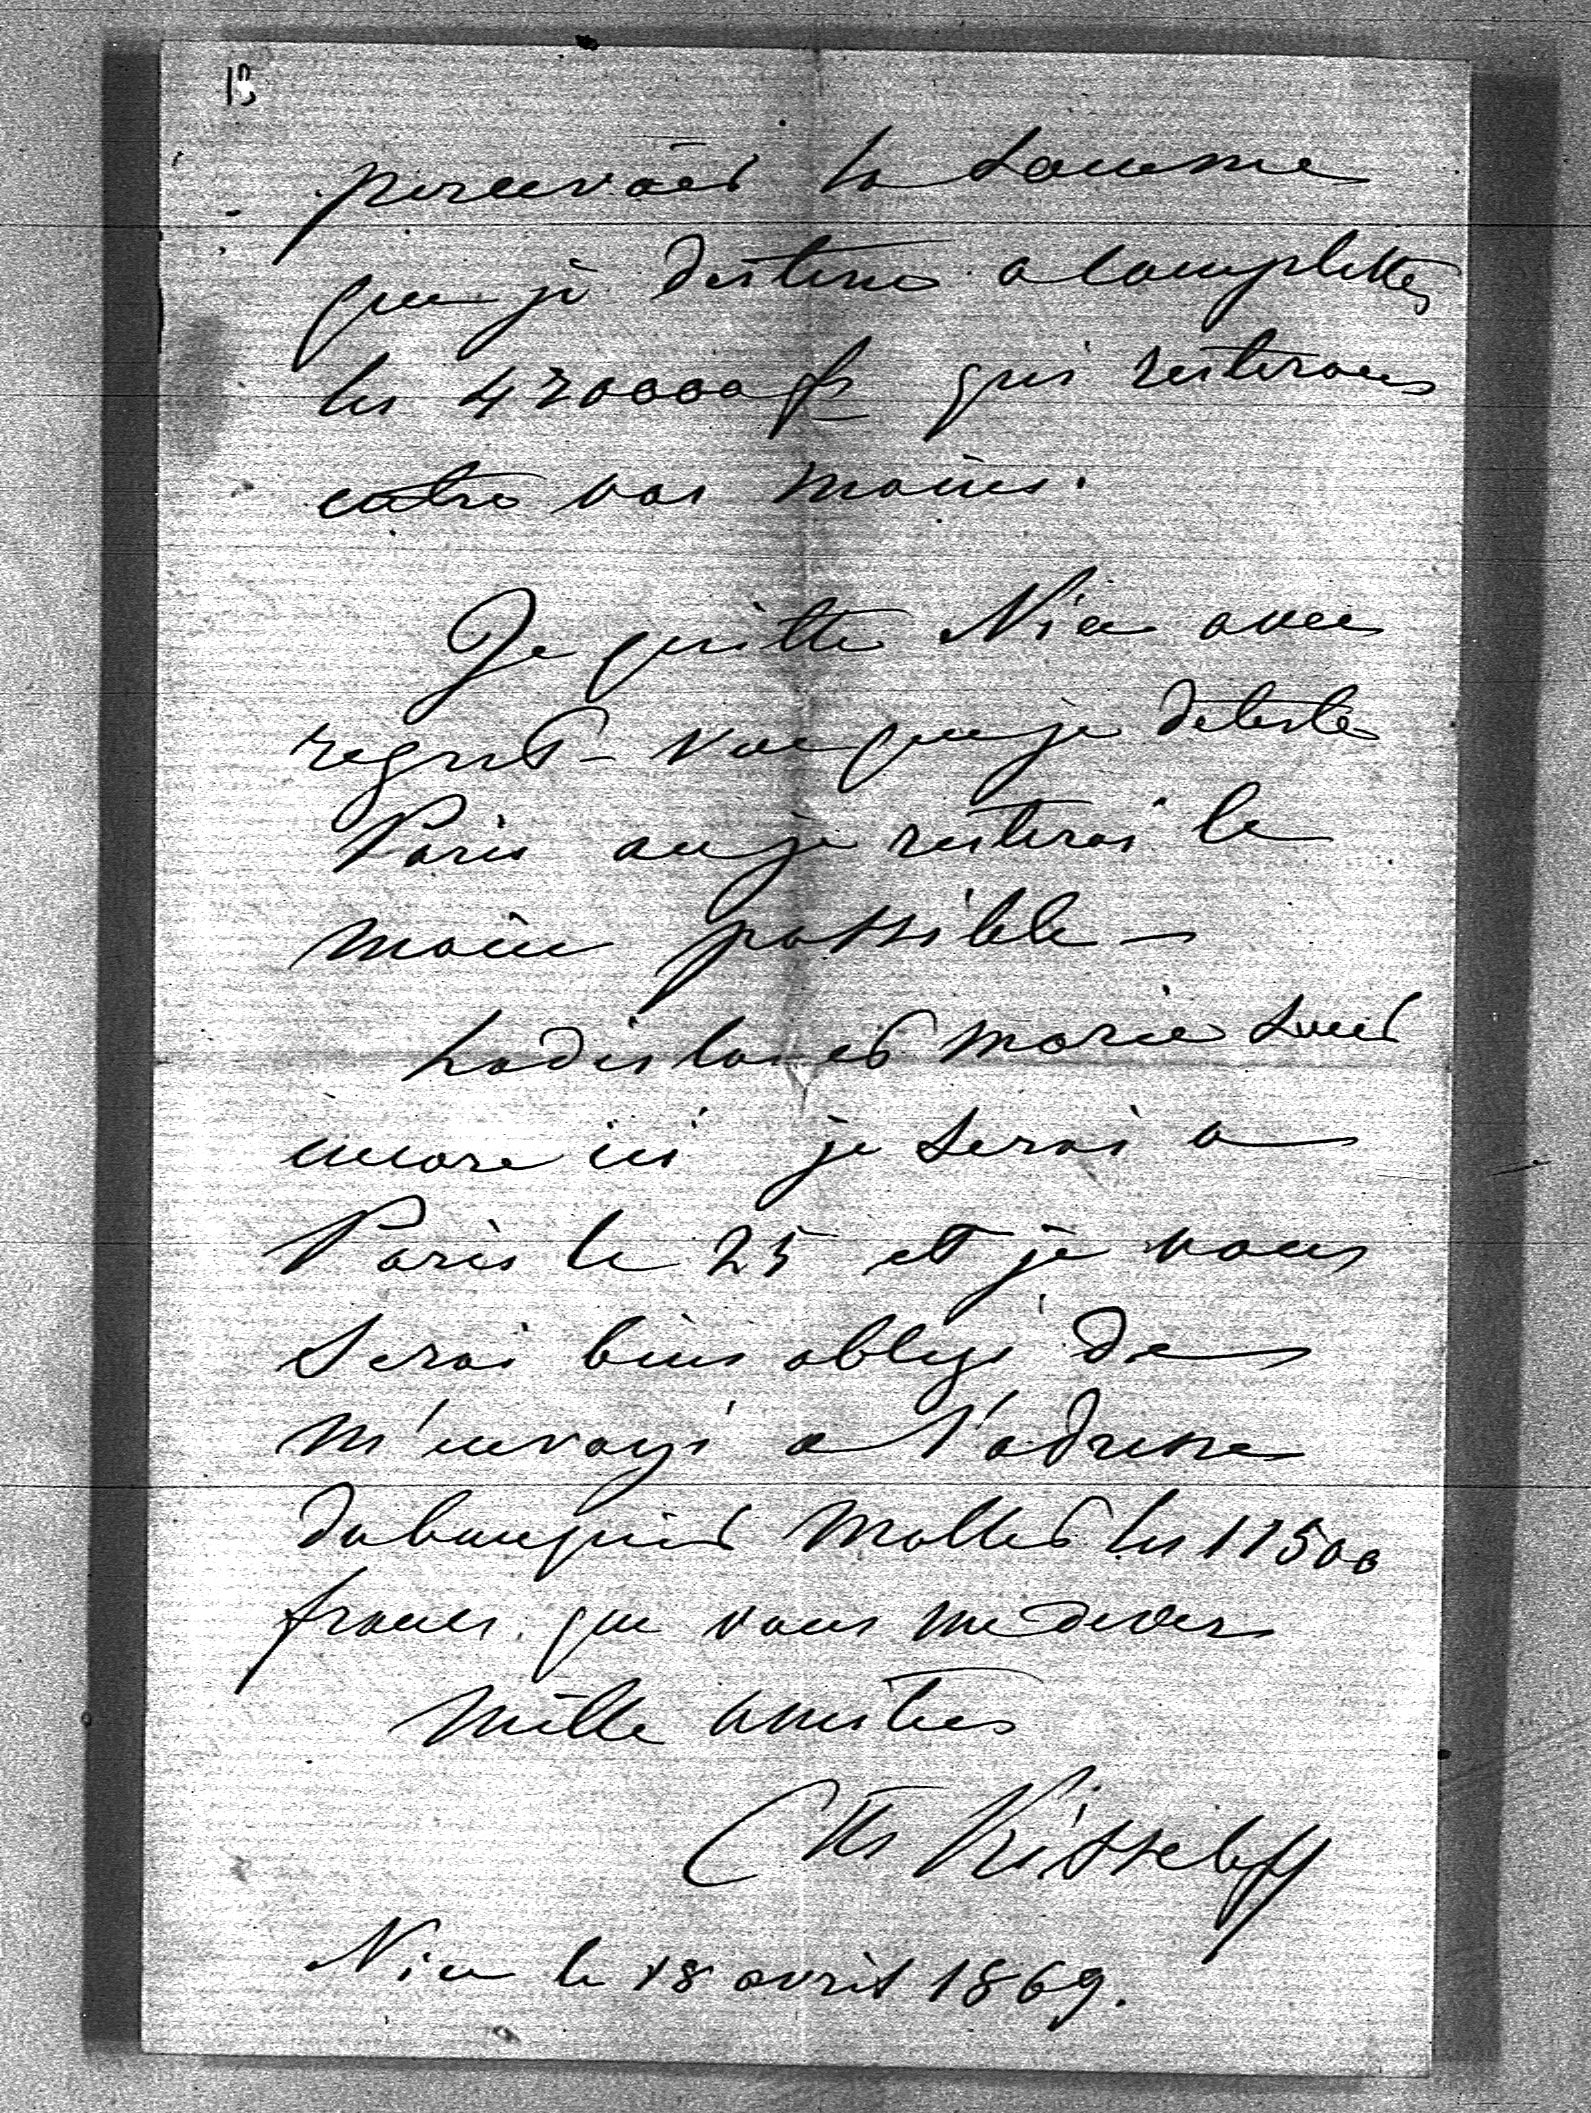 13
percevoir la somme
que je destine a completter
les 420000 fr qui resterons
entre vos mains.
Je quitte Nice avec
regret – vue que je deteste
Paris ou je resterai le
moin possible –
Ladislas et Marie sont
encore ici je serai a
Paris le 25 et je vous
serai bien obligé de
m'envoyé a l'adresse
du banquier Mallet les 11500
francs que vous me devez
mille amitiés
Ctte Kisseleff
Nice le 18 avril 1869.